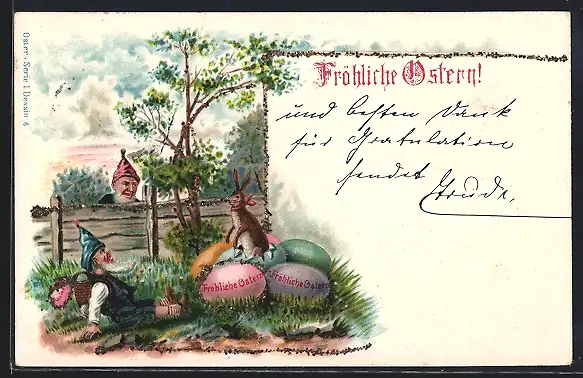 Oster-Serie I Dessin 6
Fröhliche Ostern!
und besten Dank
für Gratulation
sendet Trude.
Fröhliche Ostern
Fröhliche Ostern